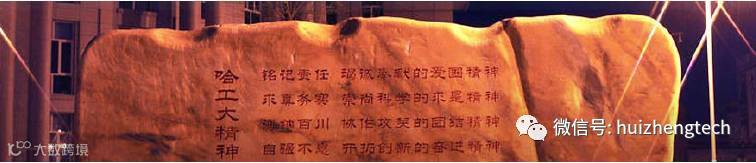 哈工大精神
铭记责任 竭诚奉献的爱国精神
求真务实 崇尚科学的求是精神
海纳百川 协作攻关的团结精神
自强不息 开拓创新的奋进精神
微信号: huizhengtech
大数跨境